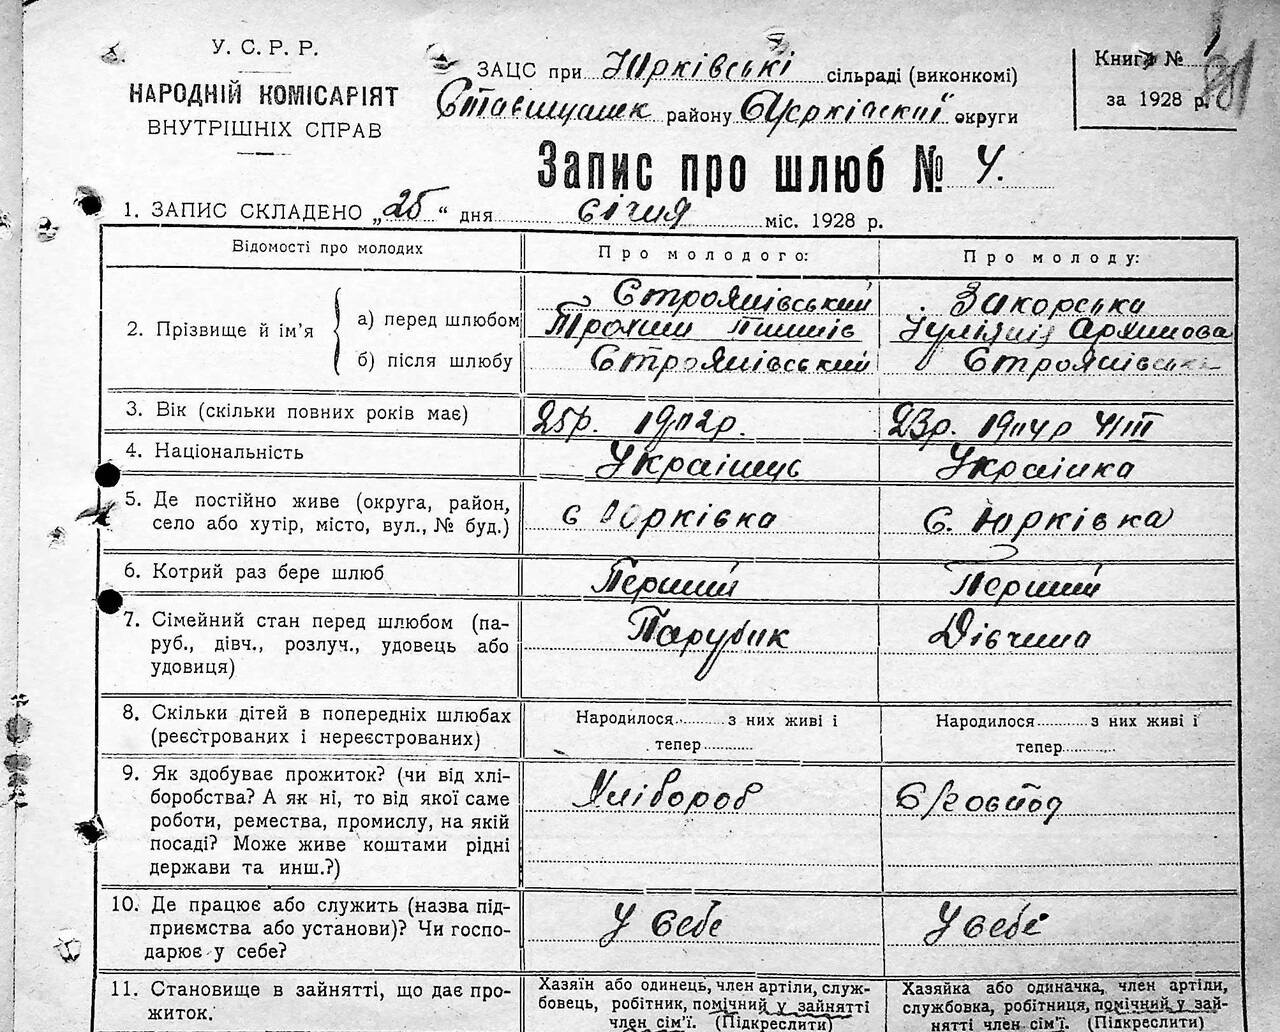 У. С. Р. Р.
НАРОДНІЙ КОМІСАРІЯТ
ВНУТРІШНІХ СПРАВ
ЗАЦС при Юрківські сільраді (виконкомі)
району округи
Книга №
за 1928 р.
81
Запис про шлюб № 4.
1. ЗАПИС СКЛАДЕНО „25“ дня січня міс. 1928 р.
Відомості про молодих Про молодого: Про молоду:
2. Прізвище й ім'я
а) перед шлюбом Строянівський Закорська
Трохим
б) після шлюбу Строянівський Строянівська
3. Вік (скільки повних років має) 25р. 1902р. 23р. 1904р
4. Національність Українець Українка
5. Де постійно живе (округа, район, село або хутір, місто, вул., № буд.) с Юрківка с. Юрківка
6. Котрий раз бере шлюб Перший Перший
7. Сімейний стан перед шлюбом (па-
руб., дівч., розлуч., удовець або
удовиця) Парубик Дівчина
8. Скільки дітей в попередніх шлюбах
(реєстрованих і нереєстрованих)
Народилося з них живі і
тепер
Народилося з них живі і
тепер
9. Як здобуває прожиток? (чи від хлі-
боробства? А як ні, то від якої саме
роботи, ремества, промислу, на якій
посаді? Може живе коштами рідні
держави та инш.?)
Хлібороб
10. Де працює або служить (назва під-
приємства або установи)? Чи госпо-
дарює у себе?
У себе У себе
11. Становище в зайнятті, що дає про-
житок.
Хазяїн або одинець, член артілі, служ-
бовець, робітник, помічний у зайнятті
член сім'ї. (Підкреслити)
Хазяйка або одиначка, член артілі,
службовка, робітниця, помічний у зай-
нятті член сім'ї. (Підкреслити)